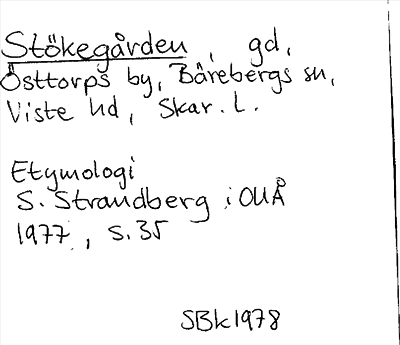 Stökegården, gd,
Östtorps by, Bårebergs sn,
Viste hd, Skar. l.
Etymologi
S. Strandberg i OUÅ
1977, s. 35
SBk1978